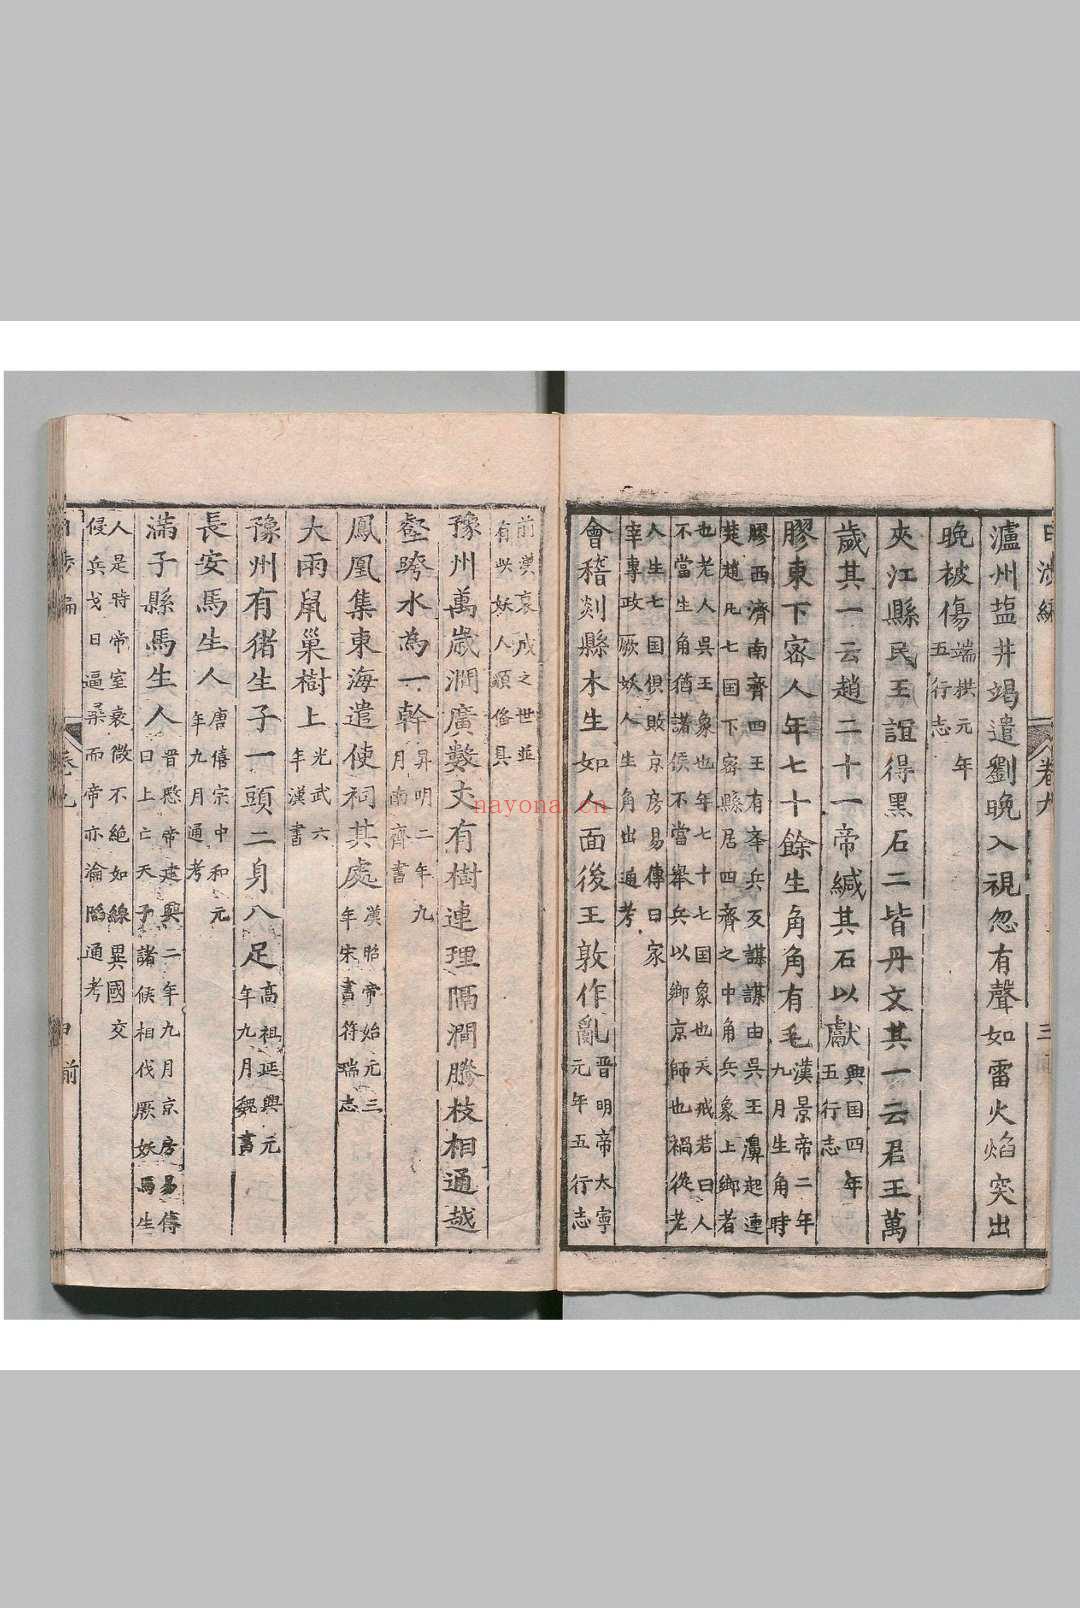 瀘州塩井竭遣劉晚入視忽有聲如雷火焰突出
晚被傷端拱元年
五行志
夾江縣民王誼得黑石二皆丹文其一云君王萬
歲其一云趙二十一帝緘其石以獻興国四年
五行志
膠東下密人年七十餘生角角有毛漢景帝二年
九月生角時
膠西濟南齊四王有卒兵反謀謀由吳王濞起連
楚趙凡七国下密縣居四齊之中角兵象上鄉者
也老人吳王象也年七十七国象也天戒若曰人
不當生角猶諸侯不當舉兵以鄉京師也禍從老
人生七国俱敗京房易傳曰冢
宰專政厥妖人生角出通考
會稽剡縣木生如人面後王敦作亂晋明帝大寧
元年五行志
前漢哀成之世並
有此妖人頭俻具
豫州萬歲澗廣數丈有樹連理隔澗騰枝相通越
壑跨水為一幹昇明二年九
月南齊書
鳳凰集東海遣使祠其處漢昭帝始元三
年宋書符瑞志
大雨鼠巢樹上光武六
年漢書
豫州有猪生子一頭二身八足高祖延興元
年九月魏書
長安馬生人唐僖宗中和元
年九月通考
滿子縣馬生人晋愍帝建興二年九月京房易傳
曰上亡天子諸候相伐厥妖馬生
人是時帝室衰微不絕如線異國交
侵兵戈日逼尋而帝亦淪陷通考
卷九
三
前
nayona.cn